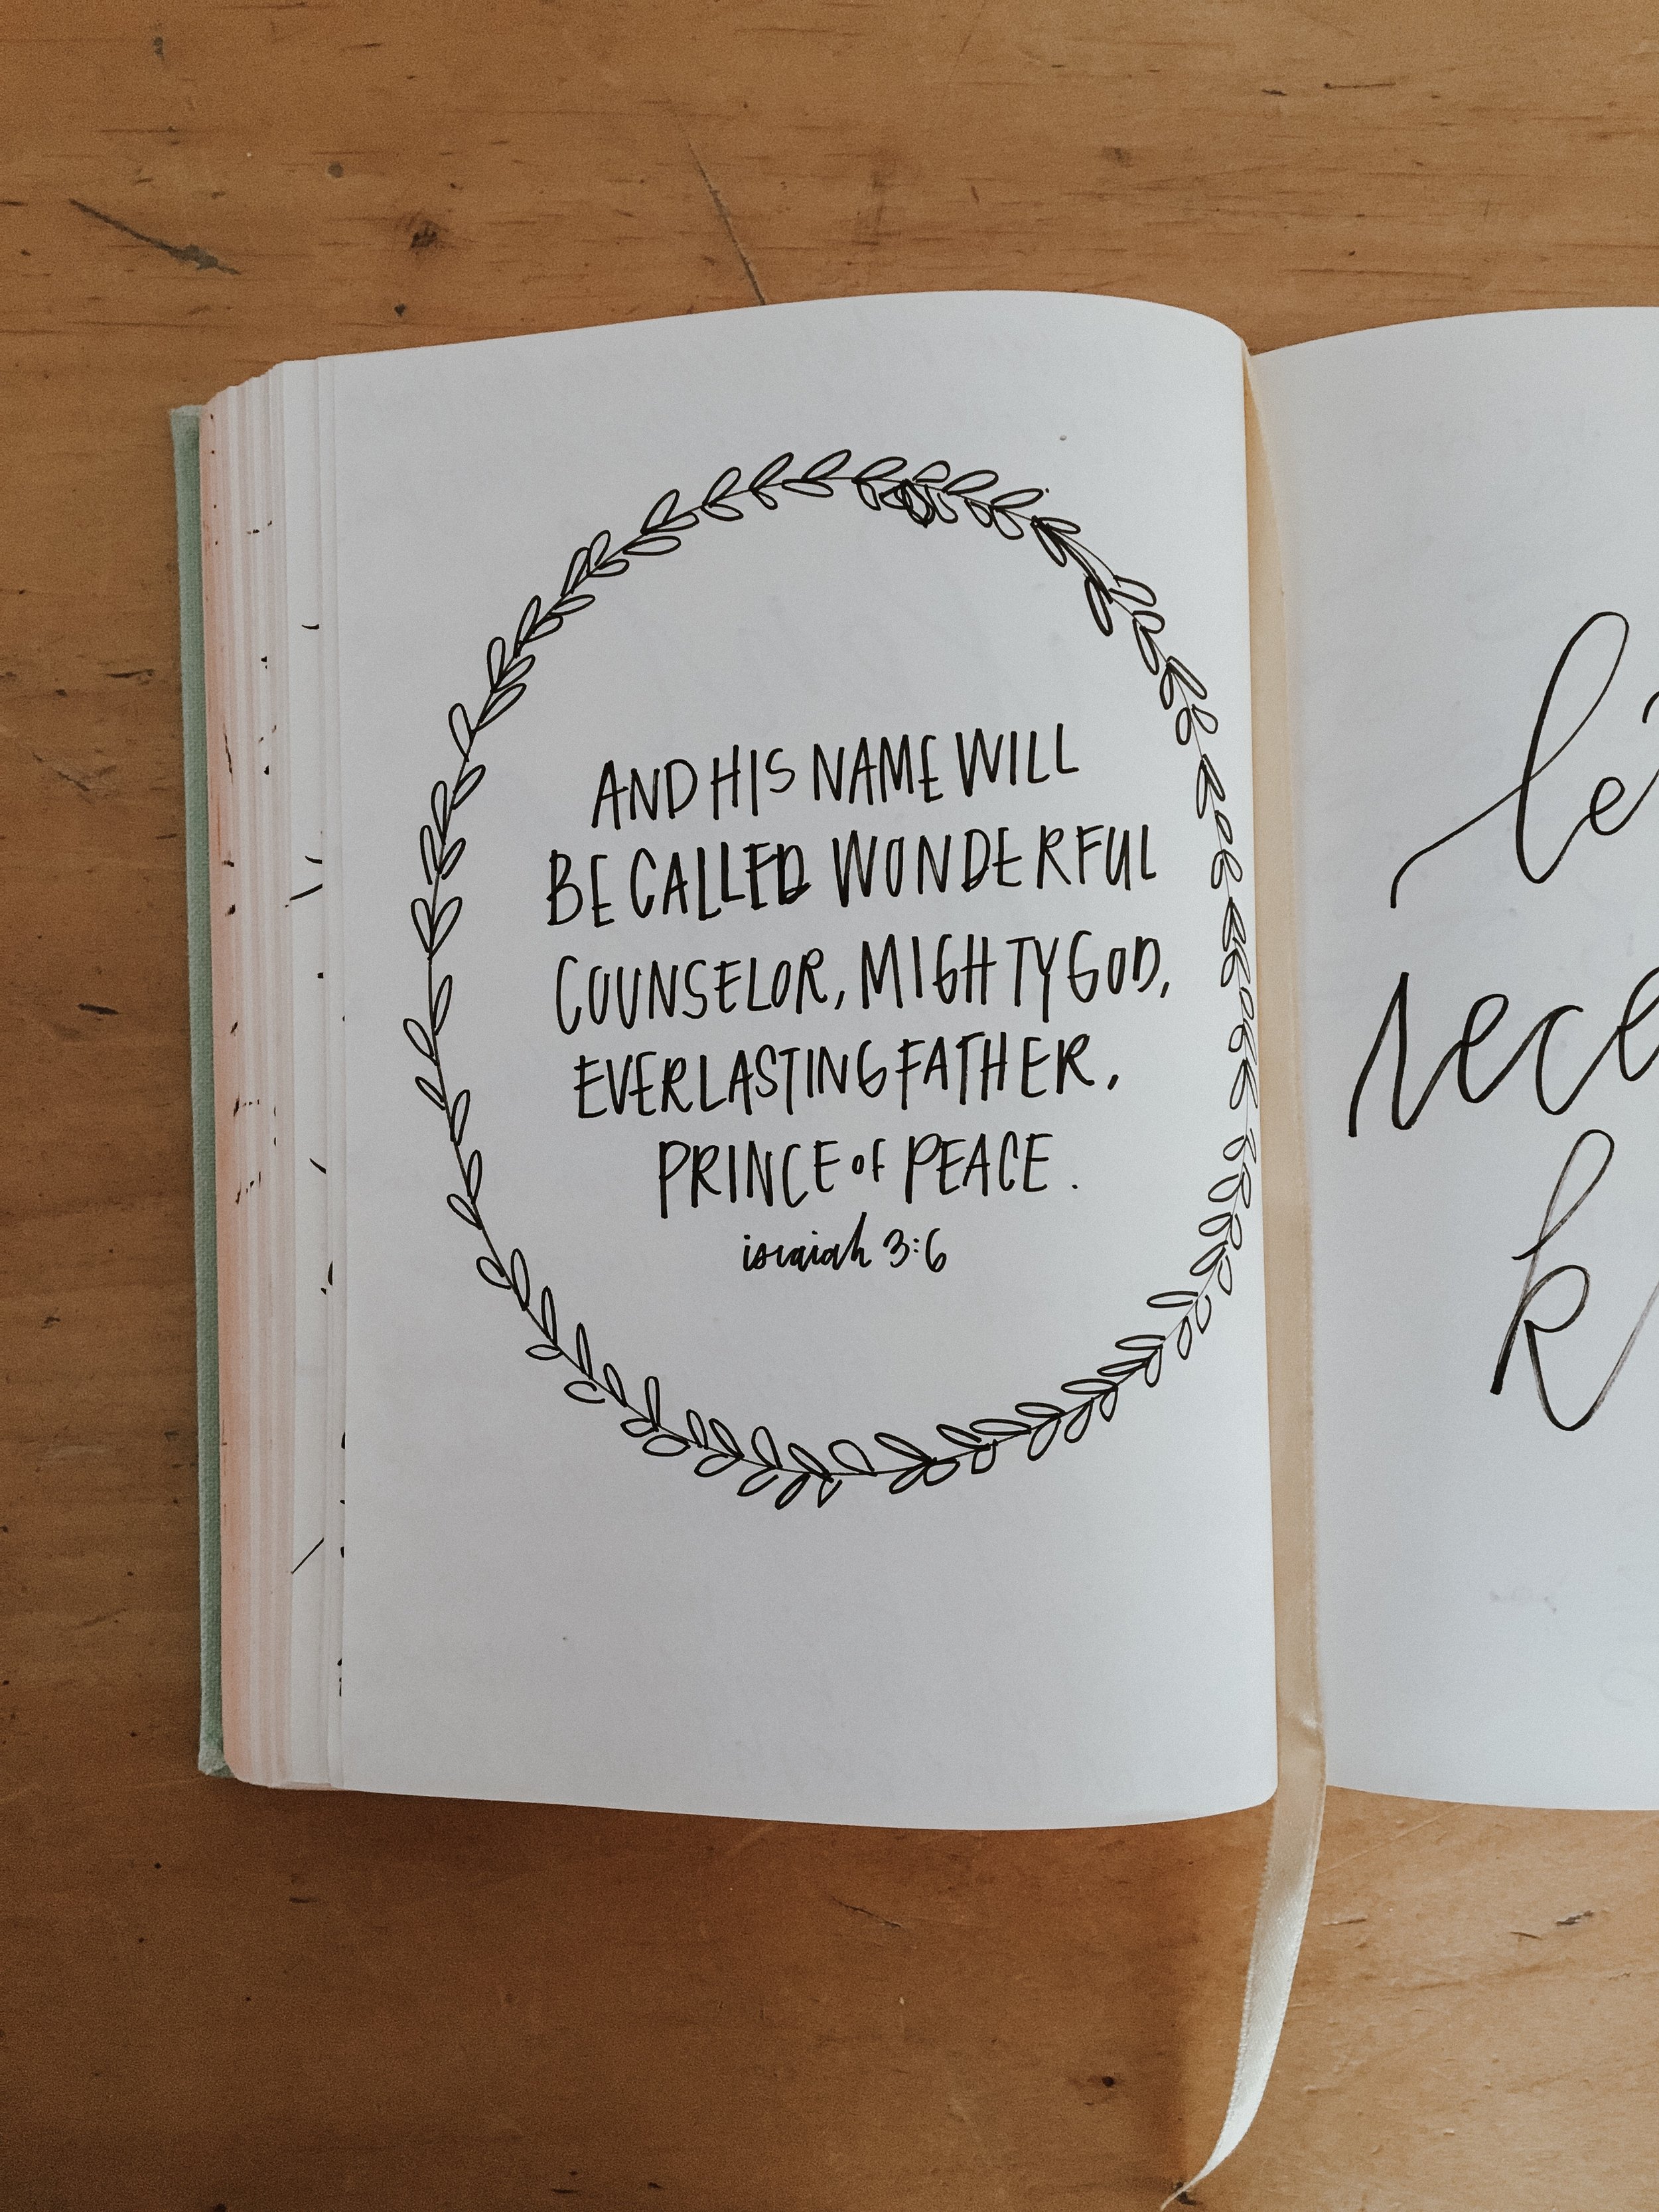 AND HIS NAME WILL
BE CALLED WONDERFUL
COUNSELOR, MIGHTY GOD,
EVERLASTING FATHER,
PRINCE of PEACE.
isaiah 3:6